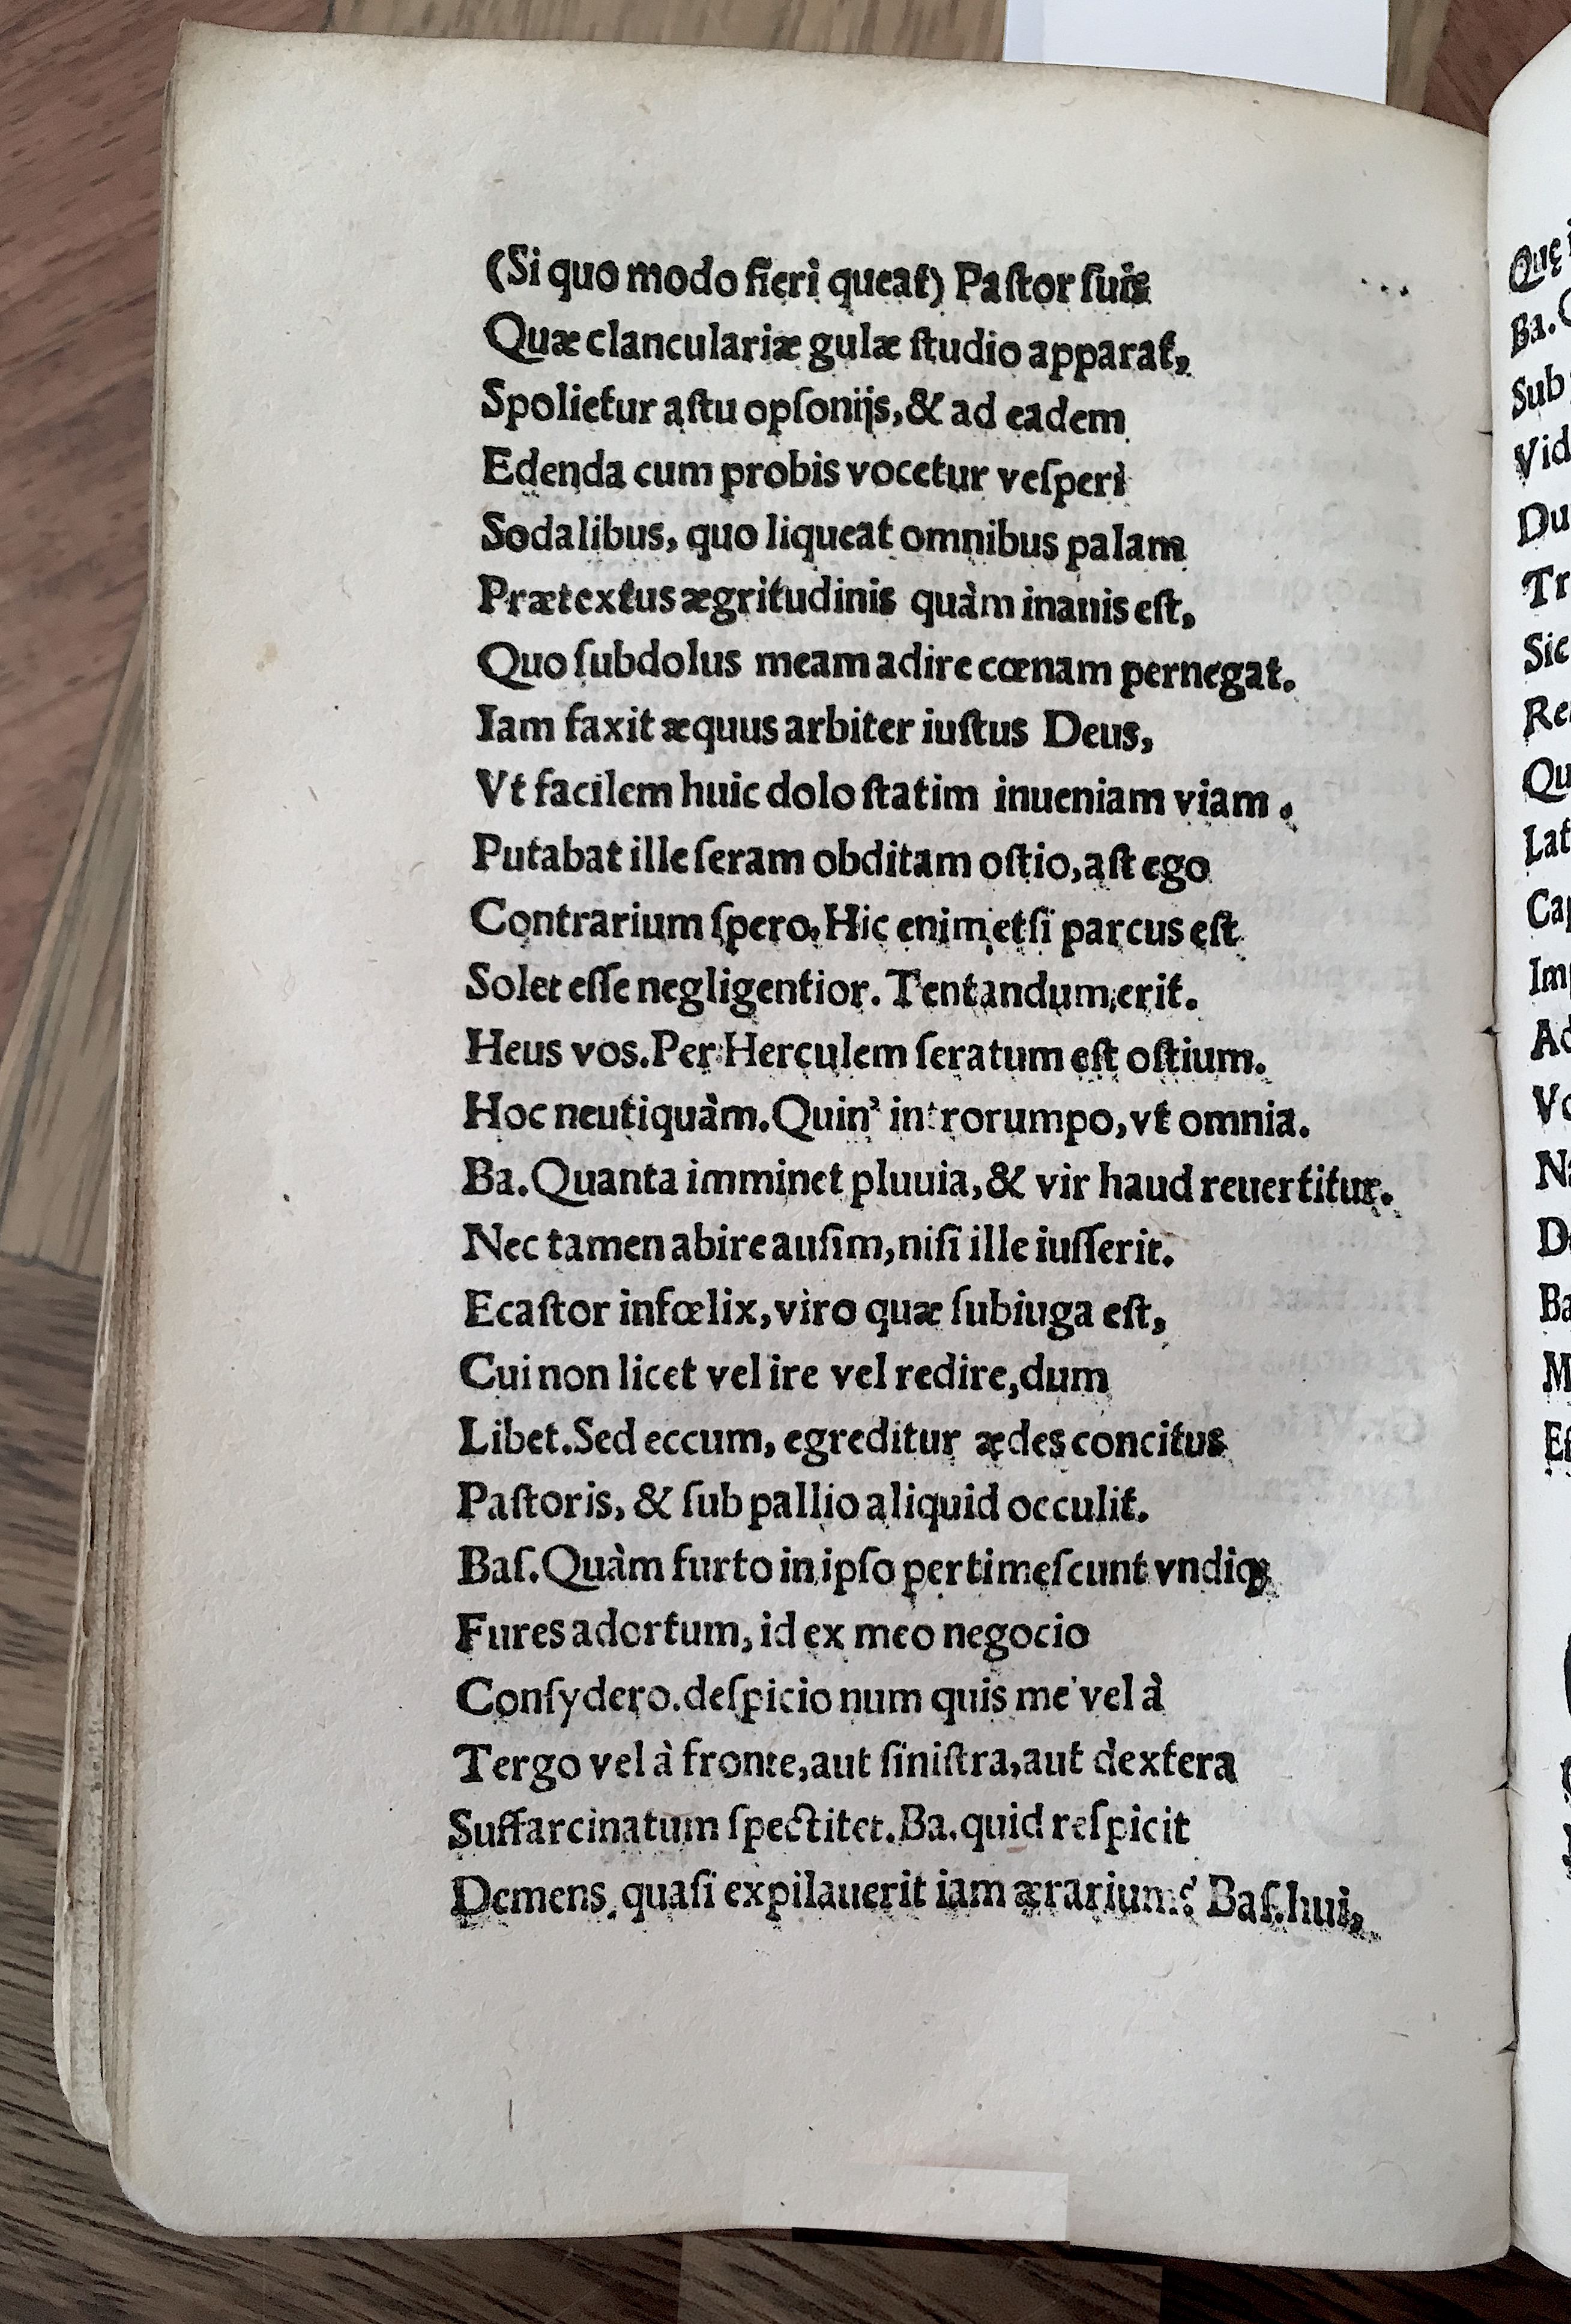 (Si quo modo fieri queat) Paſtor ſuis
Quæ clanculariæ gulæ ſtudio apparat,
Spolietur aſtu opſonijs, & ad eadem
Edenda cum probis vocetur veſperi
Sodalibus, quo liqueat omnibus palam
Prætextus ægritudinis quàm inanis eſt,
Quo ſubdolus meam adire cœnam pernegat.
Iam faxit æquus arbiter iuſtus Deus,
Vt facilem huic dolo ſtatim inueniam viam.
Putabat ille ſeram obditam oſtio, aſt ego
Contrarium ſpero, Hic enim etſi parcus eſt
Solet eſſe negligentior. Tentandum erit.
Heus vos. Per Herculem ſeratum eſt oſtium.
Hoc neutiquàm. Quin' introrumpo, vt omnia.
Ba. Quanta imminet pluuia, & vir haud reuertitur.
Nec tamen abire auſim, niſi ille iuſſerit.
Ecaſtor infœlix, viro quæ ſubiuga eſt,
Cui non licet vel ire vel redire, dum
Libet. Sed eccum, egreditur ædes concitus
Paſtoris, & ſub pallio aliquid occulit.
Baſ. Quàm furto in ipſo pertimeſcunt vndiqꝫ
Fures adortum, id ex meo negocio
Conſydero. deſpicio num quis me vel à
Tergo vel à fronte, aut ſiniſtra, aut dextera
Suffarcinatum ſpectitet. Ba. quid reſpicit
Demens, quaſi expilauerit iam ærarium? Baſ. hui,
Quę
Ba.
Sub
Vid
Du
Tr
Sic
Re
Qu
Lat
Ca
Im
Ad
Vo
Na
De
Ba
M